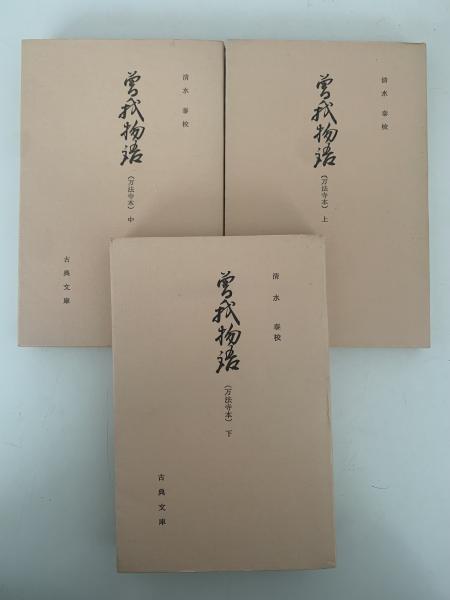 清水 泰校
曽我物語
(万法寺本) 中
古典文庫
清水 泰校
曽我物語
(万法寺本) 上
清水 泰校
曽我物語
(万法寺本) 下
古典文庫